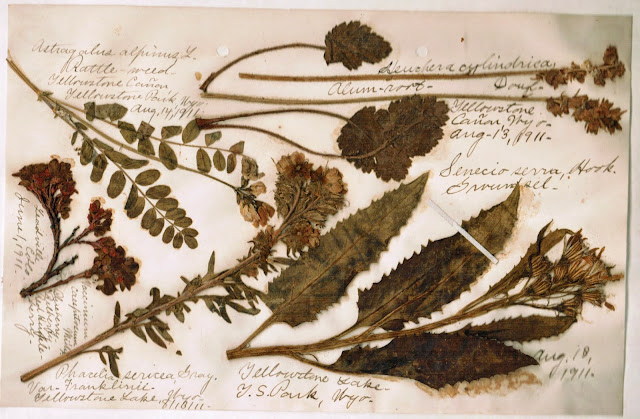 Astragalus alpinus L.
Rattle-weed.
Yellowstone Cañon
Yellowstone Park, Wyo.
Aug. 14, 1911.
Heuchera cylindrica,
Dougl.
Alum-root.
Yellowstone
Cañon, Wyo.
Aug-13, 1911.
Senecio serra, Hook.
Groundsel.
Yellowstone Lake.
Y.S. Park, Wyo.
Aug. 18,
1911.
Phacelia sericea, Gray.
Var. Franklinii.
Yellowstone Lake, Wyo.
8/18/11.
Leadville,
Colo.
June, 1911.
Vaccinium